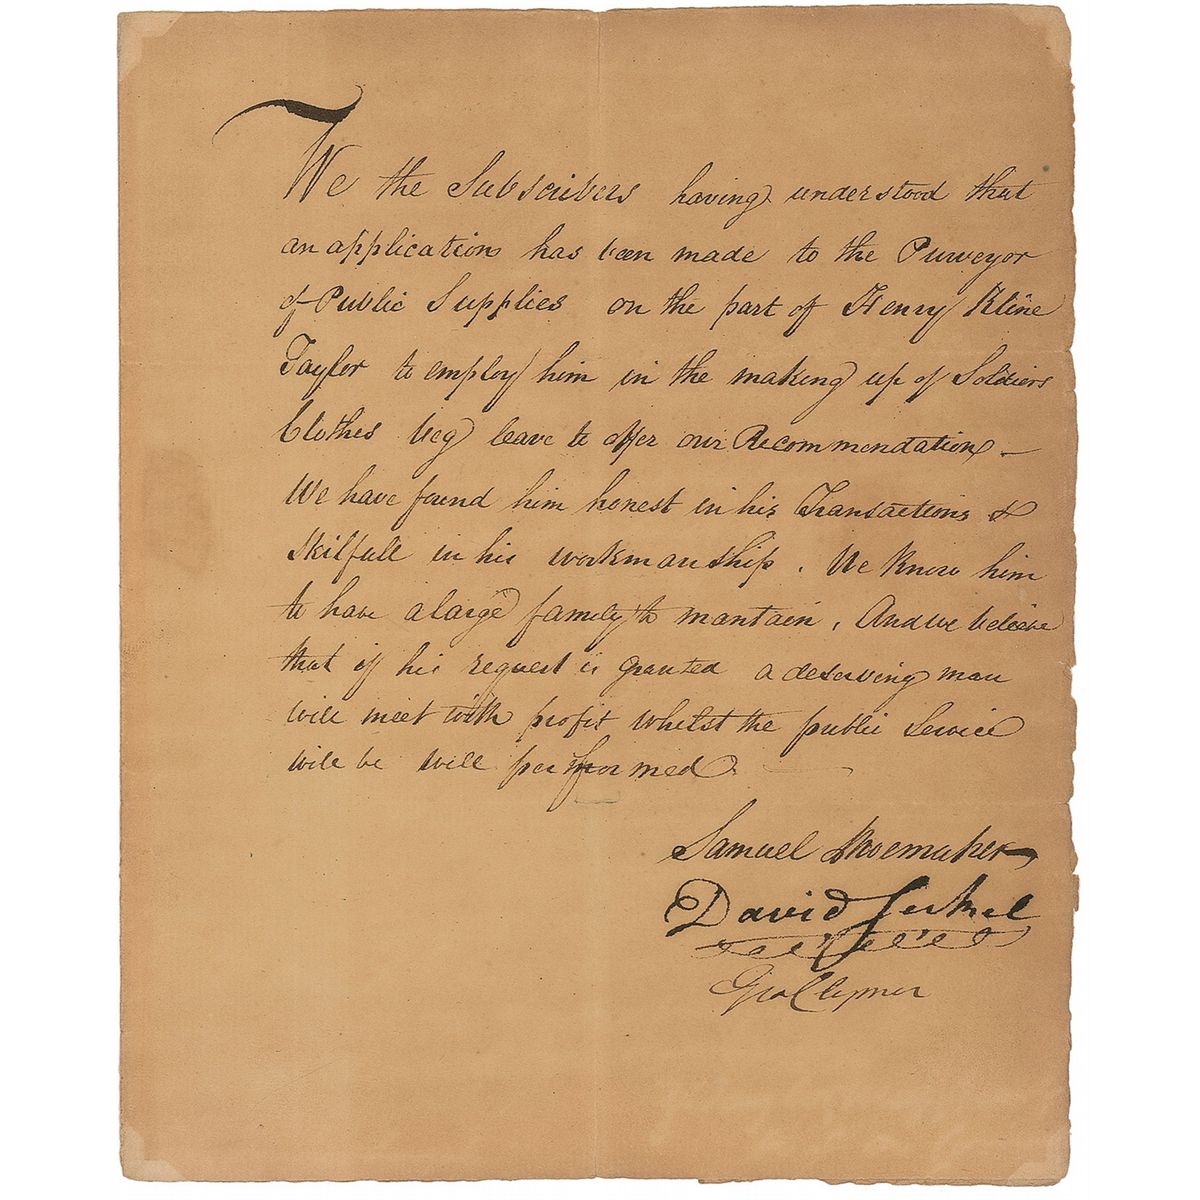 We the Subscribers having understood that
an application has been made to the Purveyor
of Public Supplies on the part of Henry Kline
Taylor to employ him in the making up of Soldiers
Clothes beg leave to offer our Recommendation –
We have found him honest in his Transactions &
Skilfull in his workmanship. We know him
to have a large family to mantain, And we believe
that if his request is granted a deserving man
will meet with profit whilst the public Service
will be well performed.
Samuel Shoemaker
David
Geo Clymer